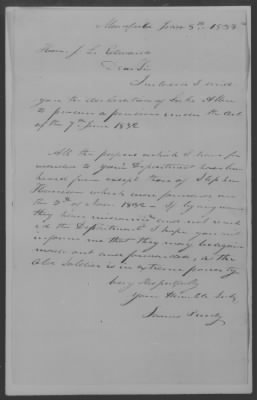 Mansfield June 8th 1838
Hon. J. L. Edwards
Dear Sir
Inclosed I send
you the declaration of Luke Allen
to procure a pension under the Act
of the 7th June 1832
All the papers which I have for
warded to your Department have been
heard from except those of Stephen
Harrison which were forwarded on
the 2d of June 1832 - If by any means
they have miscarried and not reach
ed the Department I hope you will
inform me that they may be again
made out and forwarded, as the
Old Soldier is in extreme poverty
Very Respectfully
Your Humble Svt,
James Purdy